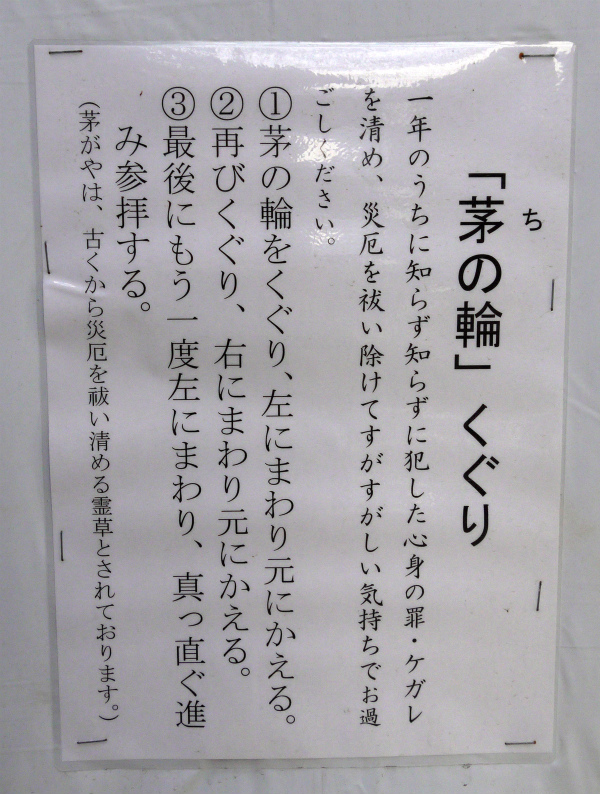 「茅の輪」くぐり
ち
一年のうちに知らず知らずに犯した心身の罪・ケガレ
を清め、災厄を祓い除けてすがすがしい気持ちでお過
ごしください。
①茅の輪をくぐり、左にまわり元にかえる。
②再びくぐり、右にまわり元にかえる。
③最後にもう一度左にまわり、真っ直ぐ進
み参拝する。
（茅がやは、古くから災厄を祓い清める霊草とされております。）